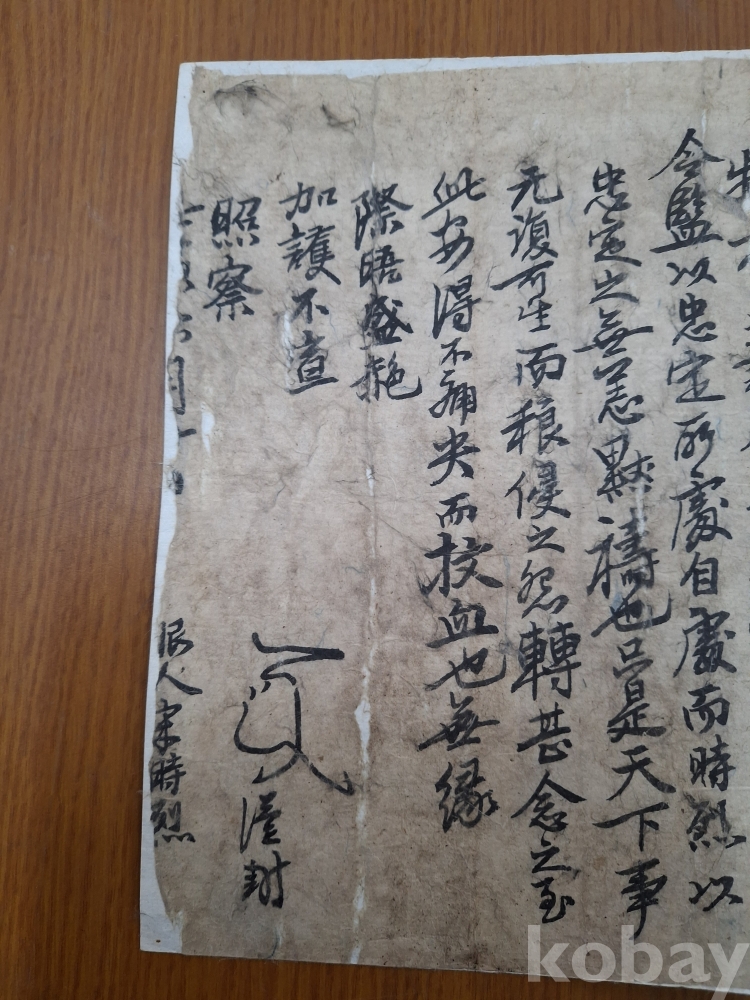 令監以忠定所處自處而時烈以
忠定之無恙默禱也只是天下事
无復可生而稂侵之怨轉甚念之至
此安得不痛哭而抆血也無緣
際晤盛
加護不宣
照察
六月一日
謹封
人宋時烈
kobay